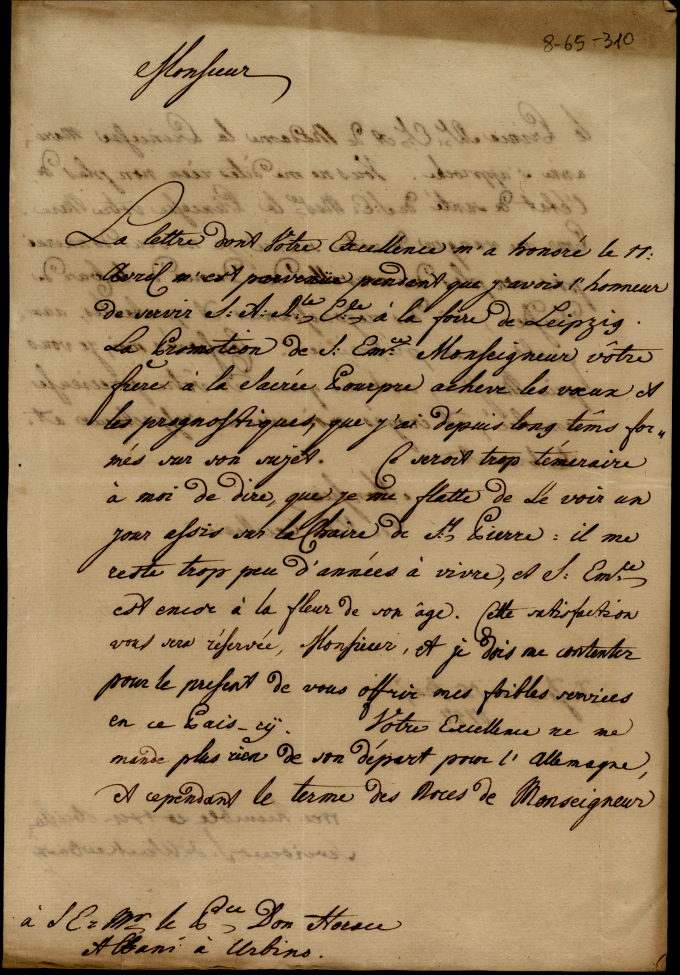 8-65-310
Monsieur
La lettre dont Votre Excellence m'a honoré le 11:
Avril m'est parvenüe pendent que j'avois l'honneur
de servir S: A: R:le E:le à la foire de Leipzig.
La Promotion de S: Em:ce Monseigneur vôtre
frère à la Sacrée Pourpre acheve les vœux et
les prognostiques, que j'ai dépuis long têms for„
més sur son sujet. Ce seroit trop témeraire
à moi de dire, que je me flatte de Le voir un
jour assis sur la Chaire de St Pierre: il me
reste trop peu d'années à vivre, et S: Em:ce
est encor à la fleur de son âge. Cette satisfaction
vous sera réservée, Monsieur, et je dois me contenter
pour le present de vous offrir mes foibles services
en ce Païs-cÿ. Votre Excellence ne me
mande plus rien de son départ pour l'Allemagne,
et cependant le terme des Noces de Monseigneur
à S E: Mr le Pce Don Horace
Albani à Urbino.